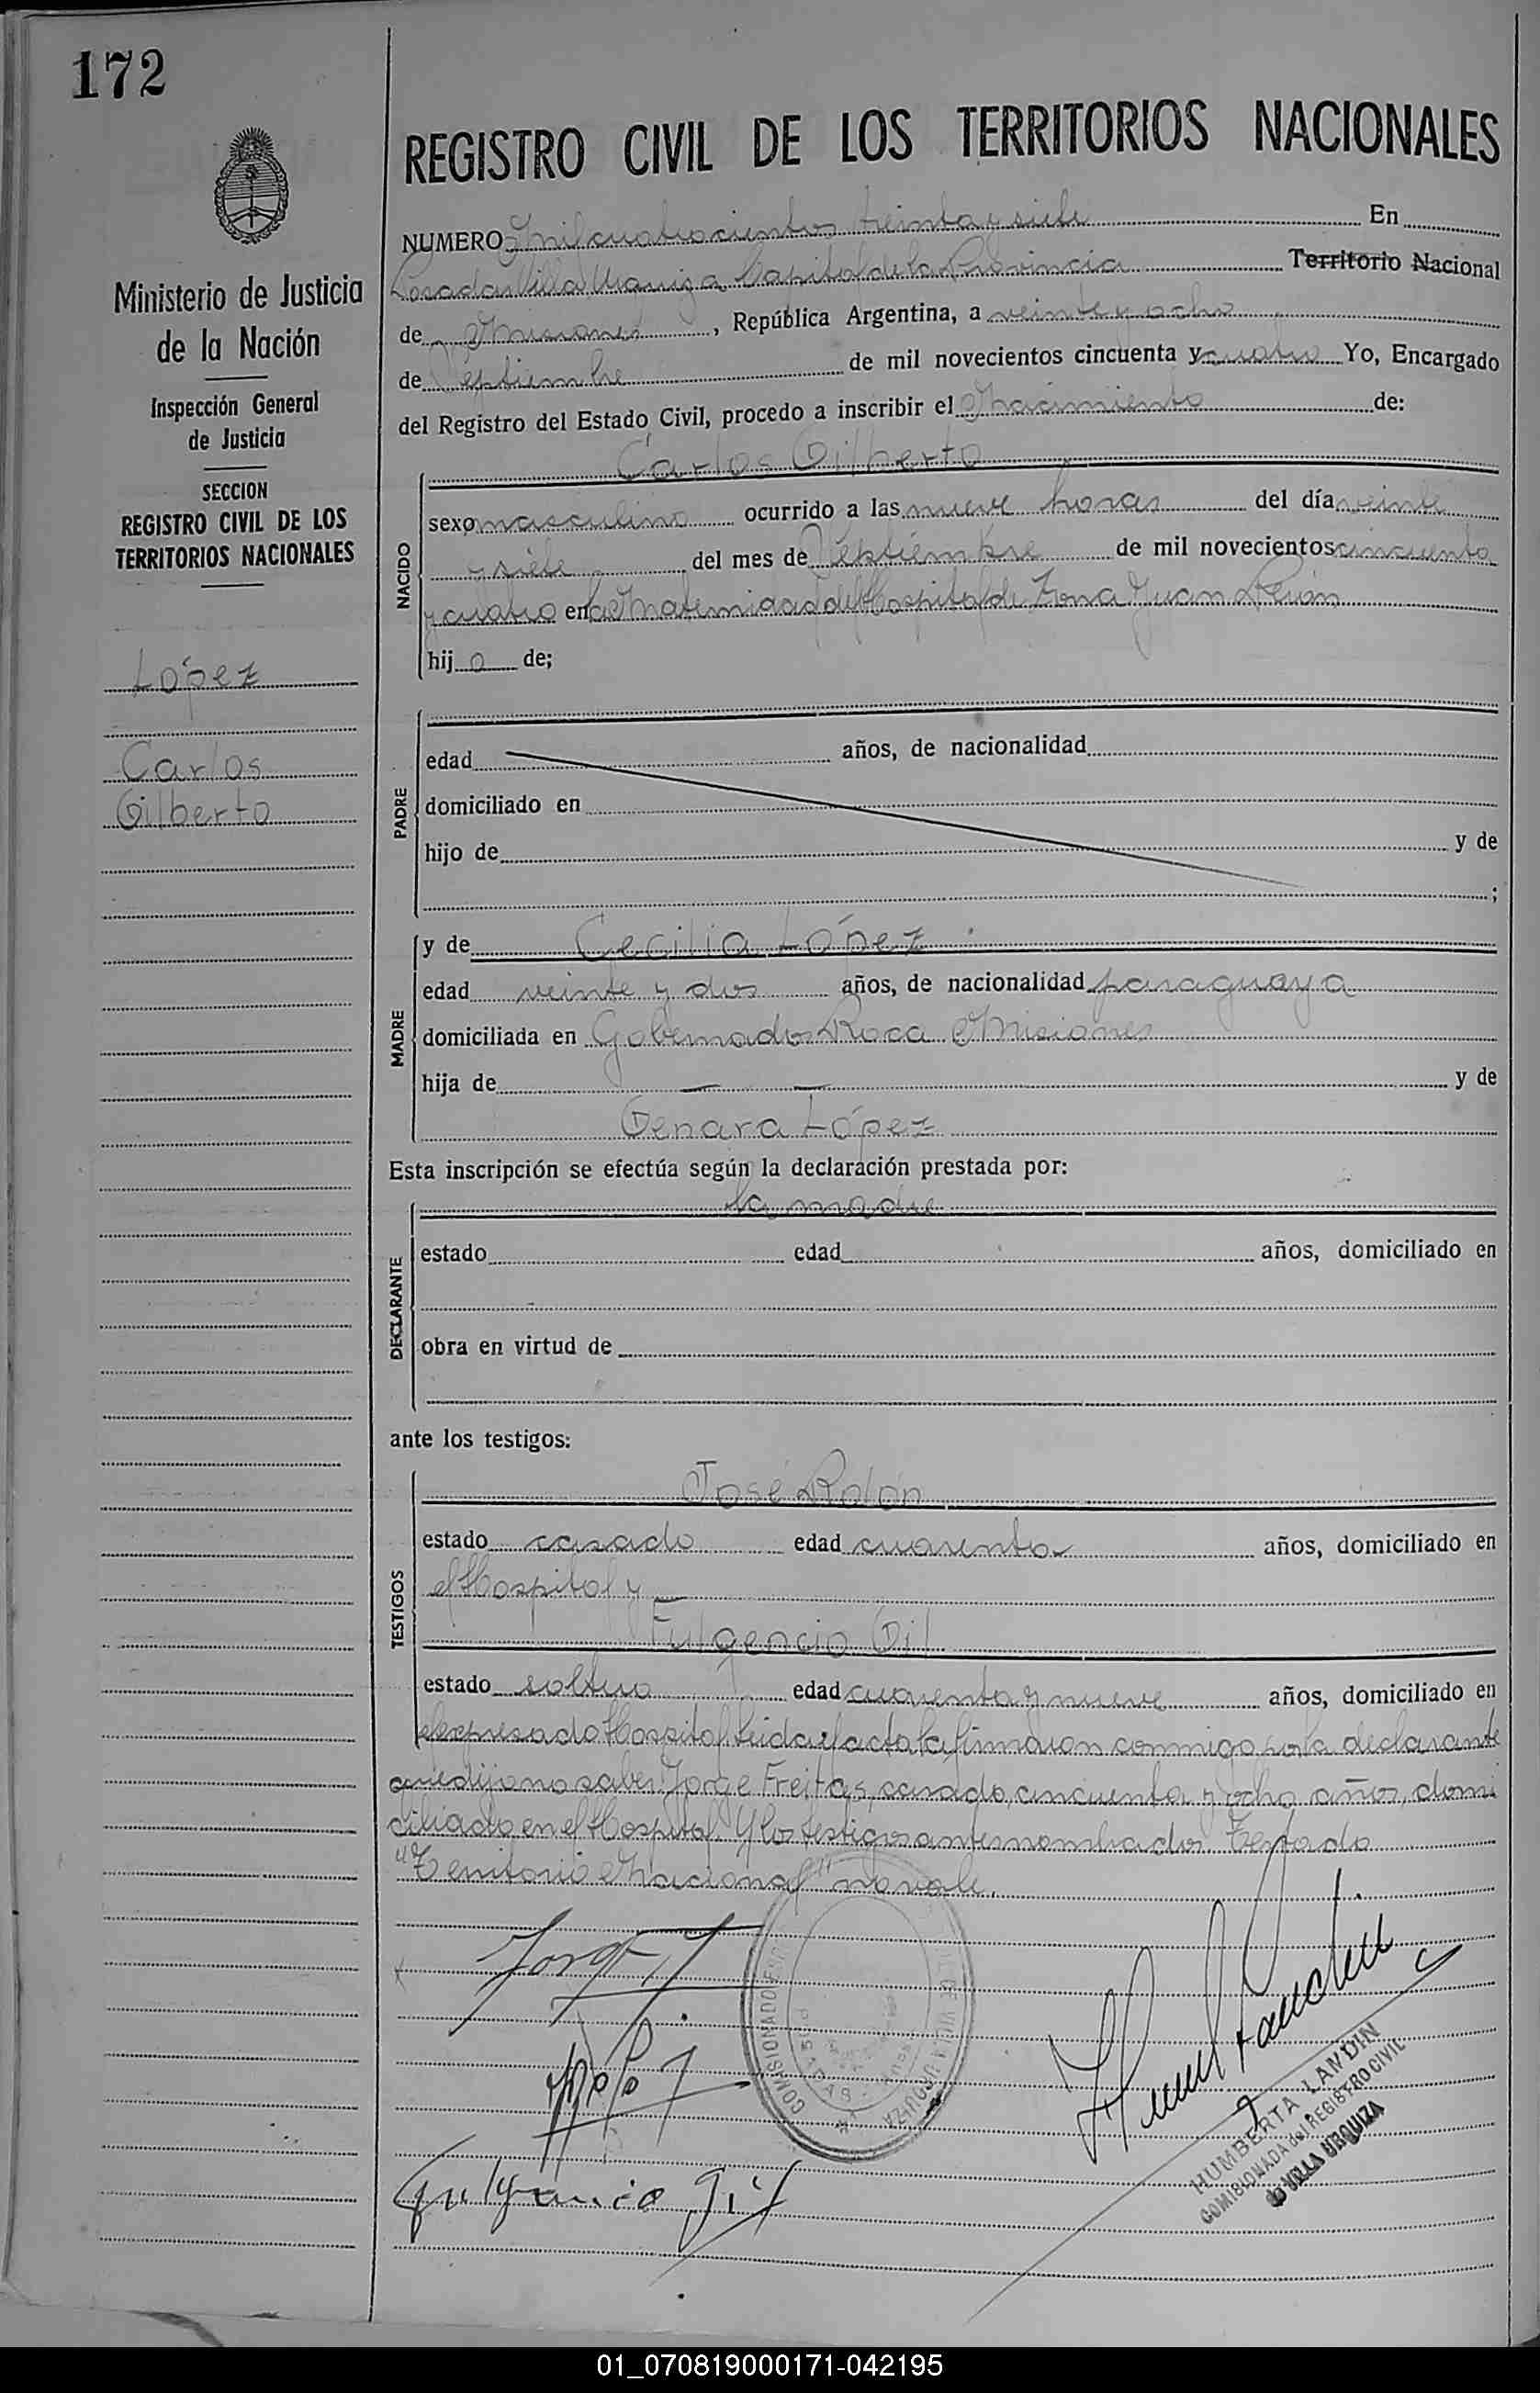 172
REGISTRO CIVIL DE LOS TERRITORIOS NACIONALES
Ministerio de Justicia
de la Nación
Inspección General
de Justicia
SECCION
REGISTRO CIVIL DE LOS
TERRITORIOS NACIONALES
López
Carlos
Gilberto
NUMERO Mil cuatrocientos treinta y siete En
Posadas Villa Urquiza Capital de la Provincia Territorio Nacional
de Misiones, República Argentina, a veinte y ocho
de Septiembre de mil novecientos cincuenta y cuatro Yo, Encargado
del Registro del Estado Civil, procedo a inscribir el Nacimiento de:
NACIDO
Carlos Gilberto
sexo masculino ocurrido a las nueve horas del día veinte
y siete del mes de Septiembre de mil novecientos cincuenta
y cuatro en la Maternidad del Hospital de Zona Juan Perón
hij o de;
PADRE
edad años, de nacionalidad
domiciliado en
hijo de y de
;
MADRE
y de Cecilia López
edad veinte y dos años, de nacionalidad paraguaya
domiciliada en Gobernador Roca Misiones
hija de — — y de
Genara López
Esta inscripción se efectúa según la declaración prestada por:
DECLARANTE
la madre
estado edad años, domiciliado en
obra en virtud de
ante los testigos:
TESTIGOS
José Rolón
estado casado edad cuarenta años, domiciliado en
el Hospital y
Fulgencio Gil
estado soltero edad cuarenta y nueve años, domiciliado en
el expresado Hospital. Leida el acta la firmaron conmigo por la declarante
que dijo no saber: Jorge Freitas, casado, cincuenta y ocho años, domi
ciliado en el Hospital. Y los testigos antes nombrados. Testado
"Territorio Nacional" no vale.
Jorge F
COMISIONADO VILLA URQUIZA
Fulgencio Gil
HUMBERTA LANDIN
COMISIONADA del REGISTRO CIVIL
de VILLA URQUIZA
01_070819000171-042195